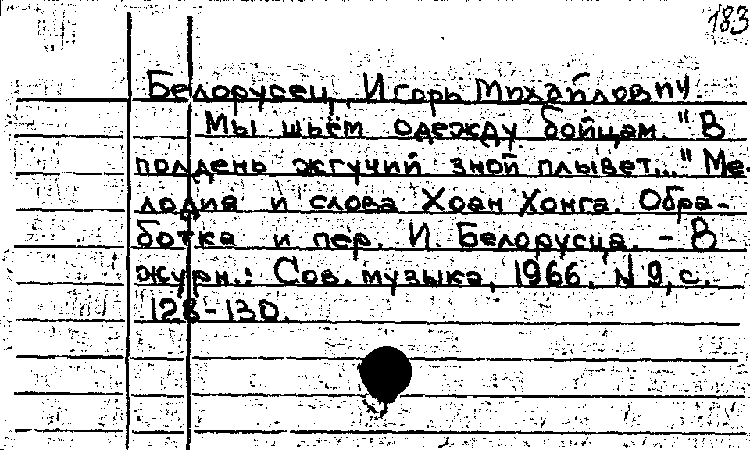 183
Белорусец, Игорь Михайлович
Мы шьём одежду бойцам. "В
полдень жгучий зной плывет..." Ме-
лодия и слова Хоан Хонга. Обра-
ботка и пер. И. Белорусца. - В
журн.: Сов. музыка, 1966. N 9, с.
128-130.